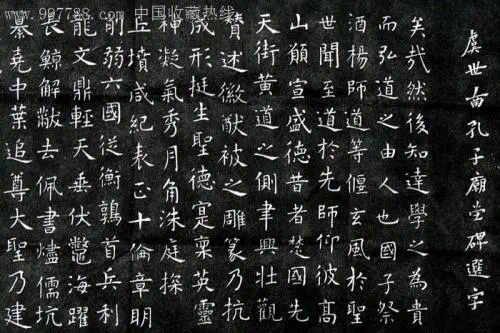 www.997788.com 中国收藏热线
虞世南孔子廟堂碑選字
矣哉然後知達學之為貴
而弘道之由人也國子祭
酒楊師道等偃玄風於聖
世聞至道於先師仰彼高
山願宣盛德昔者楚國先
天街黄道之側聿興壯觀
贊述徽猷被之雕篆乃抗
成形挺生聖德寔稟英靈
神凝氣秀月角洙庭探
丘墳咸紀表正十倫章明
削弱六國從衡鶉首兵利
龍文鼎輕天垂伏鱉海躍
長鯨解黻去佩書燼儒坑
纂堯中葉追尊大聖乃建